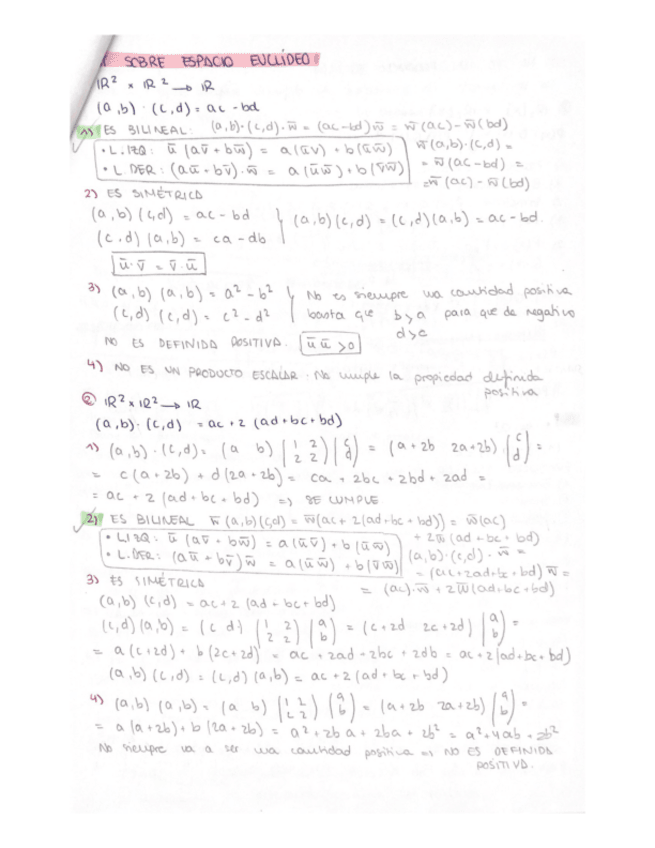 SOBRE ESPACIO EUCLÍDEO
IR² x IR² → IR
(a,b) · (c,d) = ac - bd
1) ES BILINEAL: (a,b)·(c,d)·w̄ = (ac-bd)w̄ = w̄(ac) - w̄(bd)
• L.IZQ: ū (av̄ + bw̄) = a(ūv) + b(ūw̄)
• L.DER: (aū + bv̄)·w̄ = a(ūw̄) + b(v̄w̄)
w̄(a,b)·(c,d) =
= w̄(ac-bd) =
= w̄(ac) - w̄(bd)
2) ES SIMÉTRICA
(a,b)(c,d) = ac - bd
(c,d)(a,b) = ca - db
(a,b)(c,d) = (c,d)(a,b) = ac - bd.
ū·v̄ = v̄·ū
3) (a,b)(a,b) = a² - b²
(c,d)(c,d) = c² - d²
No es siempre una cantidad positiva
basta que b>a para que de negativo
d>c
NO ES DEFINIDA POSITIVA. ū ū > 0
4) NO ES UN PRODUCTO ESCALAR. No cumple la propiedad definida
positiva
② IR² x IR² → IR
(a,b)·(c,d) = ac + 2 (ad + bc + bd)
1) (a,b)·(c,d) = (a b) (1 2 2 2) (c d) = (a+2b 2a+2b)·(c d) =
= c(a+2b) + d(2a+2b) = ca + 2bc + 2bd + 2ad =
= ac + 2(ad + bc + bd) => SE CUMPLE
2) ES BILINEAL w̄(a,b)(c,d) = w̄(ac + 2(ad+bc+bd)) = w̄(ac)
+ 2w̄(ad + bc + bd)
• L.IZQ: ū (av̄ + bw̄) = a(ūv̄) + b(ūw̄)
• L.DER: (aū + bv̄)w̄ = a(ūw̄) + b(v̄w̄)
(a,b)·(c,d)·w̄ =
= (ac+2ad+bc+bd)w̄ =
= (ac)·w̄ + 2w̄(ad+bc+bd)
3) ES SIMÉTRICA
(a,b)(c,d) = ac + 2(ad + bc + bd)
(c,d)(a,b) = (c d) (1 2 2 2) (a b) = (c+2d 2c+2d) (a b) =
= a(c+2d) + b(2c+2d) = ac + 2ad + 2bc + 2db = ac + 2(ad+bc+bd)
(a,b)(c,d) = (c,d)(a,b) = ac + 2(ad + bc + bd)
4) (a,b)(a,b) = (a b) (1 2 2 2) (a b) = (a+2b 2a+2b) (a b) =
= a(a+2b) + b(2a+2b) = a² + 2ba + 2ba + 2b² = a² + 4ab + 2b²
No siempre va a ser una cantidad positiva => NO ES DEFINIDA
POSITIVA.